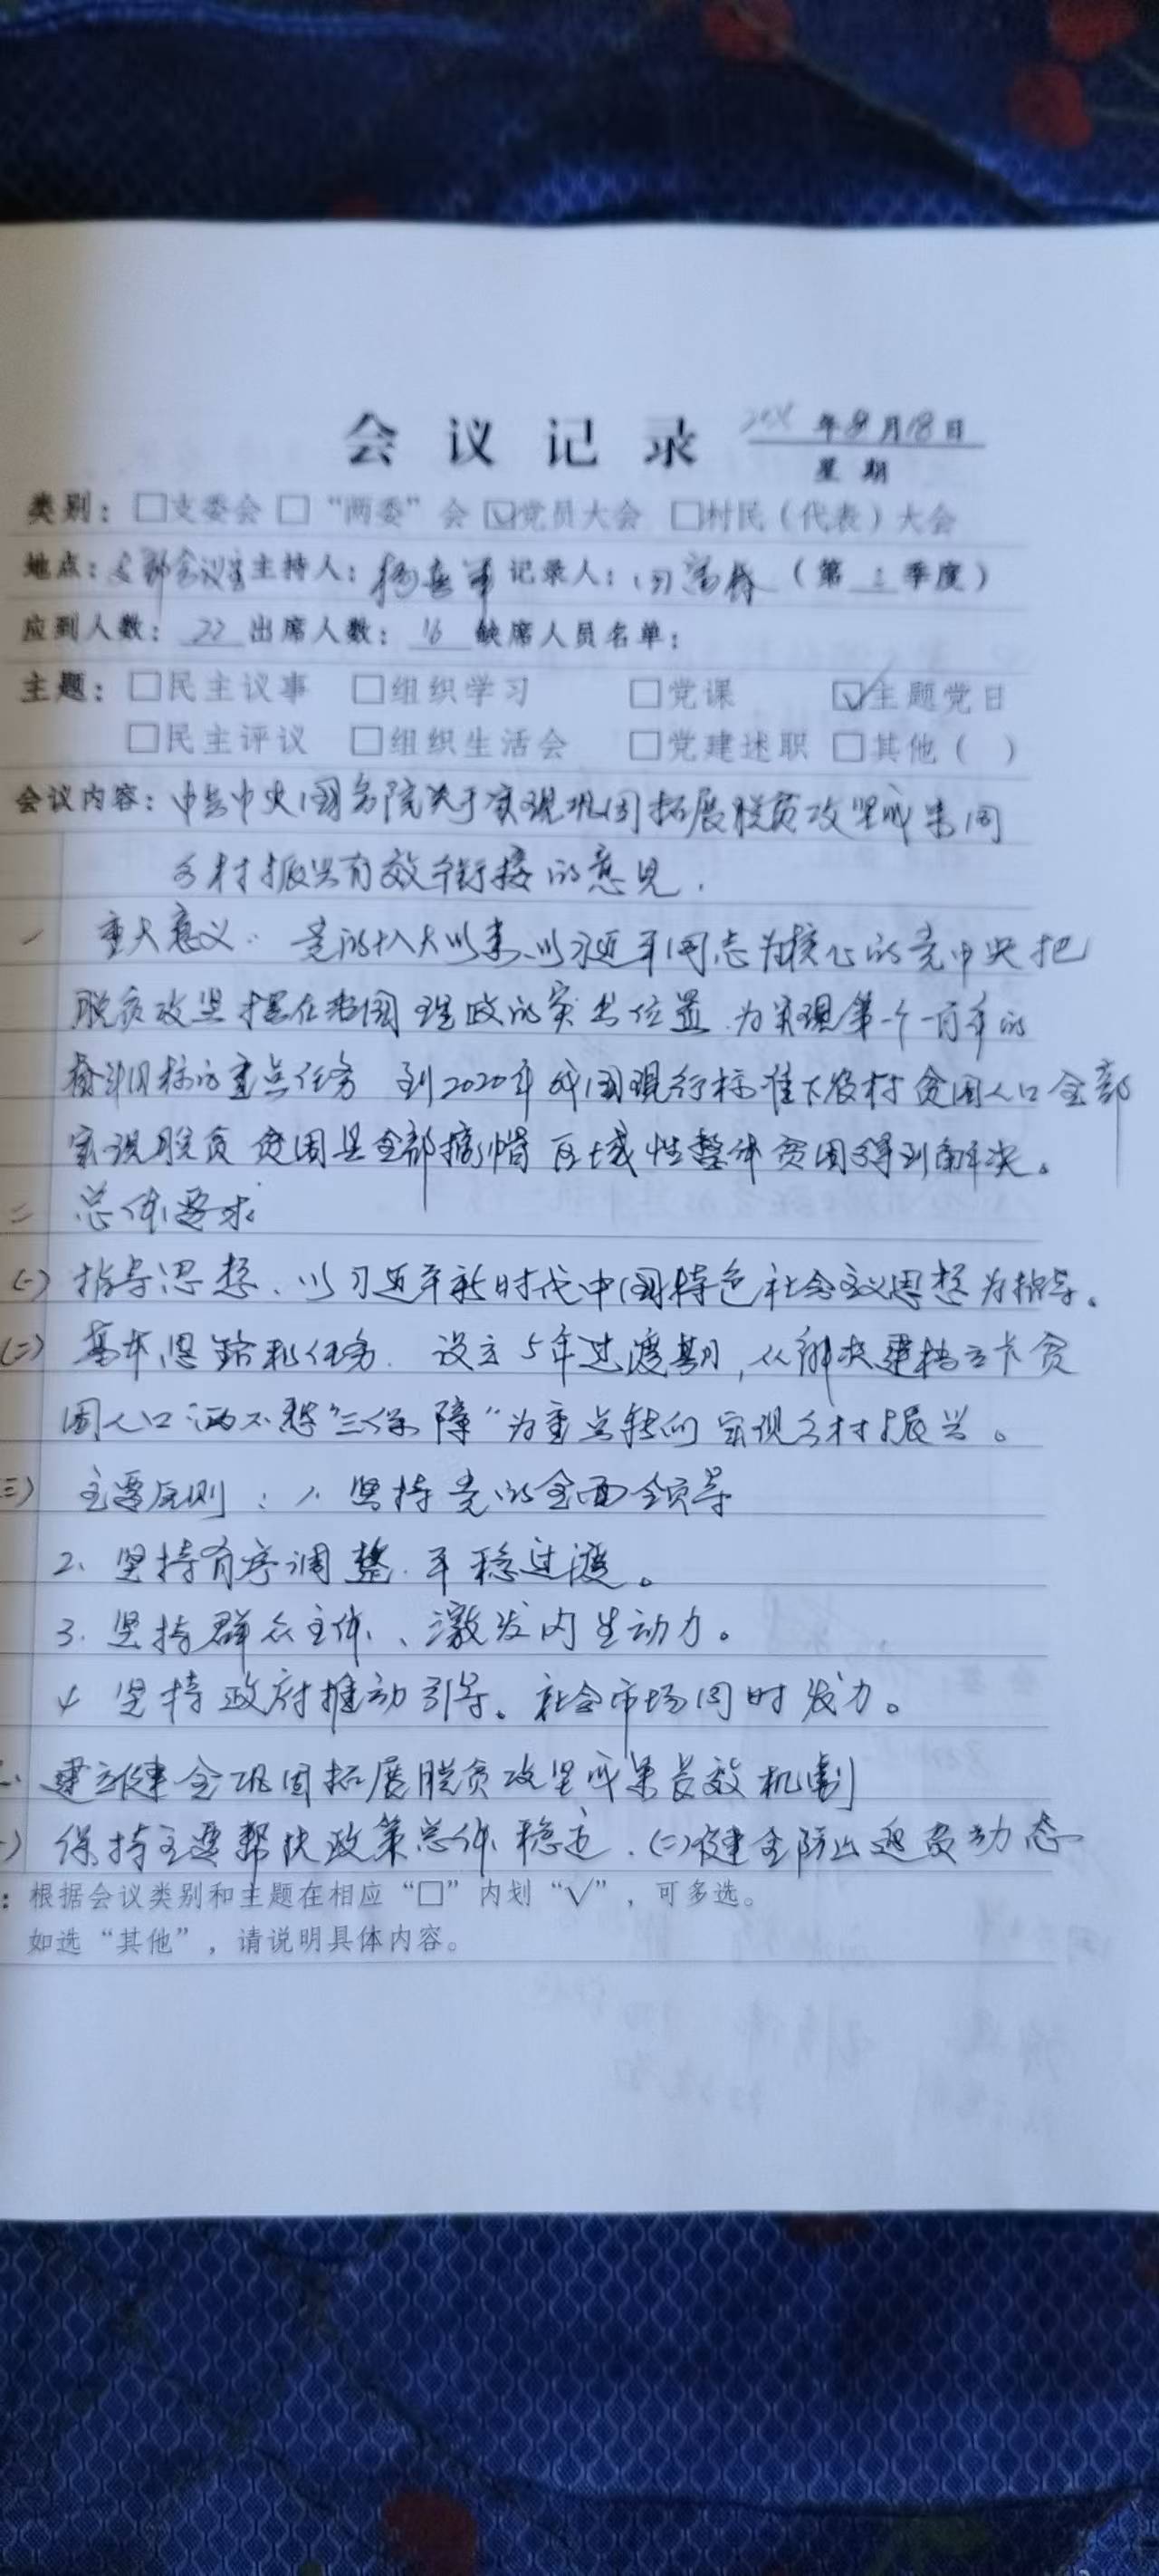 会议记录 年8月18日
星期
类别：□支委会 □“两委”会 ☑党员大会 □村民（代表）大会
地点：支部会议室 主持人： 记录人： （第 季度）
应到人数：22 出席人数：16 缺席人员名单：
主题：□民主议事 □组织学习 □党课 ☑主题党日
□民主评议 □组织生活会 □党建述职 □其他（ ）
会议内容：中共中央国务院关于实现巩固拓展脱贫攻坚成果同
乡村振兴有效衔接的意见.
一 重大意义：党的十八大以来、以习近平同志为核心的党中央把
脱贫攻坚摆在治国理政的突出位置、为实现第一个百年的
奋斗目标的重点任务 到2020年我国现行标准下农村贫困人口全部
实现脱贫 贫困县全部摘帽 区域性整体贫困得到解决。
二 总体要求
(一) 指导思想、以习近平新时代中国特色社会主义思想为指导。
(二) 基本思路和任务. 设立5年过渡期，从解决建档立卡贫
困人口“两不愁”“三保障”为重点转向实现乡村振兴。
三) 主要原则：1. 坚持党的全面领导
2. 坚持有序调整、平稳过渡。
3. 坚持群众主体、激发内生动力。
4 坚持政府推动引导。社会市场同时发力。
建立健全巩固拓展脱贫攻坚成果长效机制
) 保持主要帮扶政策总体稳定. (二)健全防止返贫动态
：根据会议类别和主题在相应“□”内划“√”，可多选。
如选“其他”，请说明具体内容。